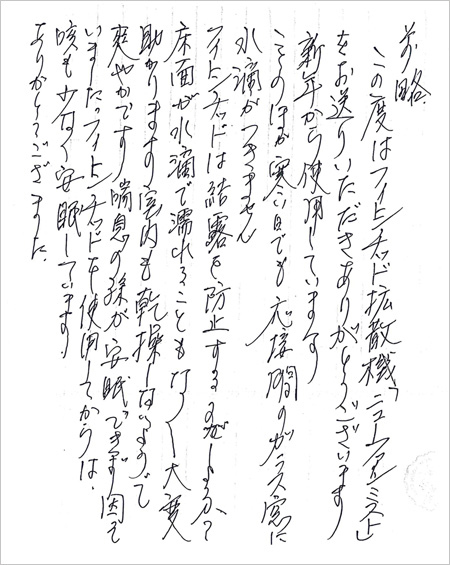 前略
この度はフィトンチッド拡散機「ニュー ミスト」
をお送りいただきありがとうございます
新年から使用しています
ことのほか寒い日でも応接間のガラス窓に
水滴がつきません
フィトンチッドは結露を防止するのでしょうか?
床面が水滴で濡れることもなく大変
助かります室内も乾操しないようで
爽やかです喘息の孫が安眠できず困って
いましたフィトンチッドを使用してからは、
咳も少なく安眠しています。
ありがとうございました。